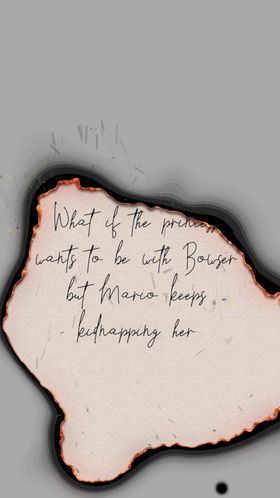 What if the princess
wants to be with Bowser
but Mario keeps
kidnapping her